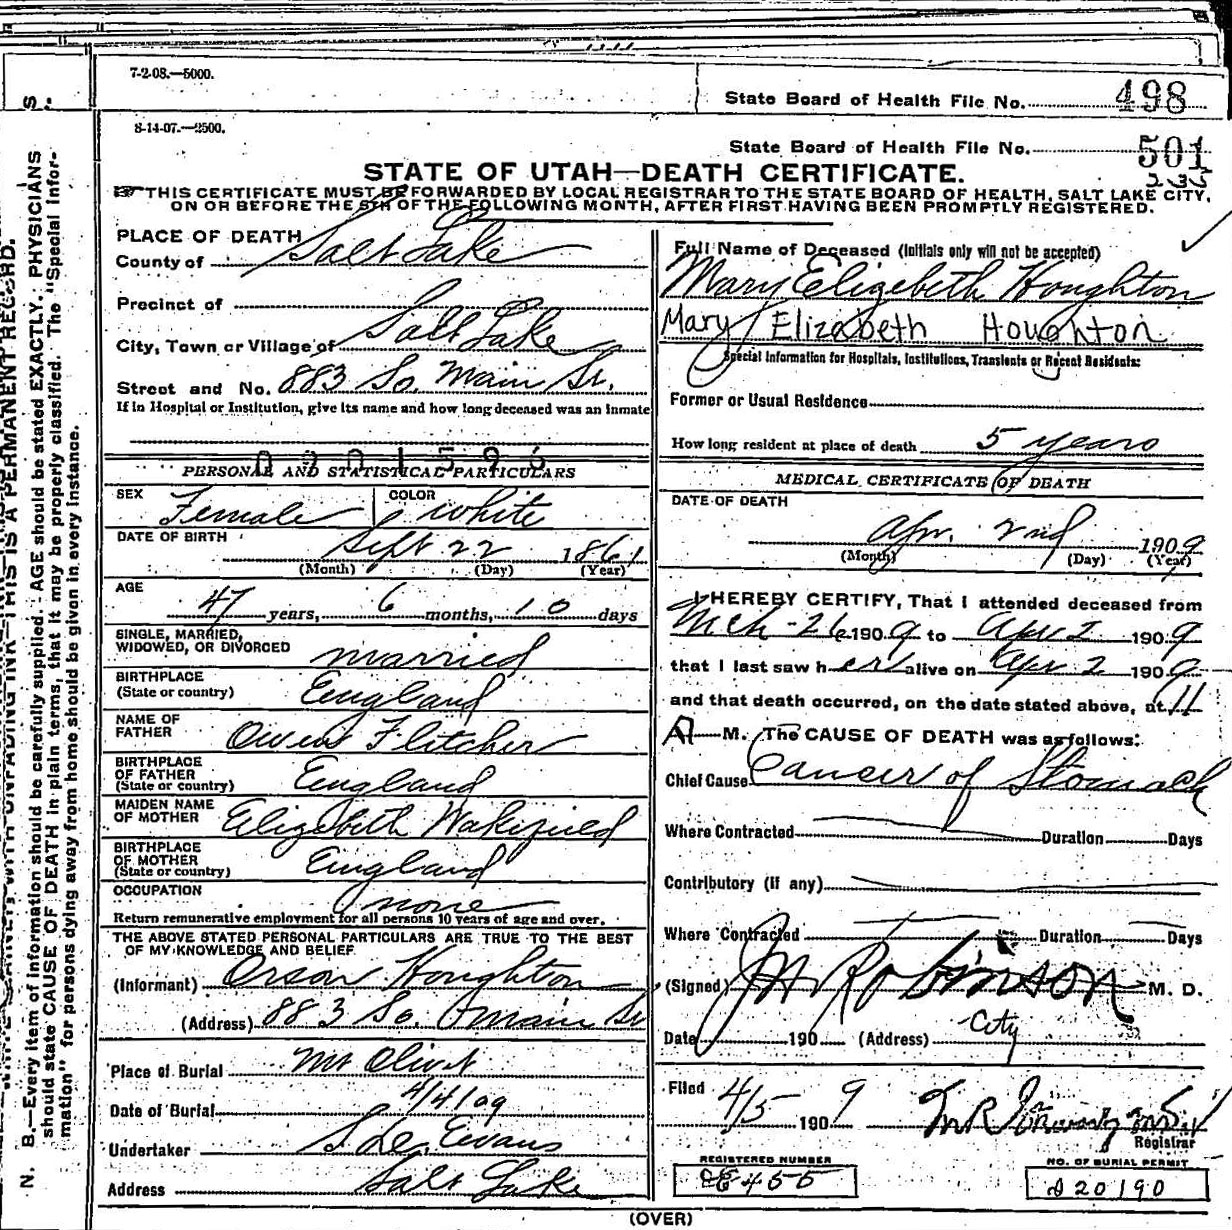 7-2-08.—5000.
State Board of Health File No. 498
8-14-07.—2500.
State Board of Health File No. 501
235
STATE OF UTAH—DEATH CERTIFICATE.
THIS CERTIFICATE MUST BE FORWARDED BY LOCAL REGISTRAR TO THE STATE BOARD OF HEALTH, SALT LAKE CITY,
ON OR BEFORE THE 5TH OF THE FOLLOWING MONTH, AFTER FIRST HAVING BEEN PROMPTLY REGISTERED.
PLACE OF DEATH
County of Salt Lake
Precinct of
City, Town or Village of Salt Lake
Street and No. 883 So. Main St.
If in Hospital or Institution, give its name and how long deceased was an inmate
PERSONAL AND STATISTICAL PARTICULARS
SEX Female COLOR White
DATE OF BIRTH Sept 22 1861
(Month) (Day) (Year)
AGE 47 years, 6 months, 10 days
SINGLE, MARRIED,
WIDOWED, OR DIVORCED married
BIRTHPLACE
(State or country) England
NAME OF
FATHER Owen Flitcher
BIRTHPLACE
OF FATHER
(State or country) England
MAIDEN NAME
OF MOTHER Elizabeth Wakifield
BIRTHPLACE
OF MOTHER
(State or country) England
OCCUPATION none
Return remunerative employment for all persons 10 years of age and over.
THE ABOVE STATED PERSONAL PARTICULARS ARE TRUE TO THE BEST
OF MY KNOWLEDGE AND BELIEF
(Informant) Orson Houghton
(Address) 883 So. Main St
Place of Burial Mt Olivet
Date of Burial 4/4/09
Undertaker Evans
Address Salt Lake
Full Name of Deceased (Initials only will not be accepted)
Mary Elizebeth Houghton
Mary Elizabeth Houghton
Special Information for Hospitals, Institutions, Transients or Recent Residents:
Former or Usual Residence
How long resident at place of death 5 years
MEDICAL CERTIFICATE OF DEATH
DATE OF DEATH
Apr. 2nd 1909
(Month) (Day) (Year)
I HEREBY CERTIFY, That I attended deceased from
Mch-26 1909 to Apr 2 1909
that I last saw her alive on Apr 2 1909
and that death occurred, on the date stated above, at 11
A M. The CAUSE OF DEATH was as follows:
Chief Cause Cancer of Stomach
Where Contracted Duration Days
Contributory (if any)
Where Contracted Duration Days
(Signed) Robinson M. D.
Date 190 (Address) City
Filed 4/5 1909
Registrar
REGISTERED NUMBER
E455
NO. OF BURIAL PERMIT
20190
(OVER)
N. B.—Every item of information should be carefully supplied. AGE should be stated EXACTLY. PHYSICIANS
should state CAUSE OF DEATH in plain terms, that it may be properly classified. The "Special Infor-
mation" for persons dying away from home should be given in every instance.
THIS IS A PERMANENT RECORD.